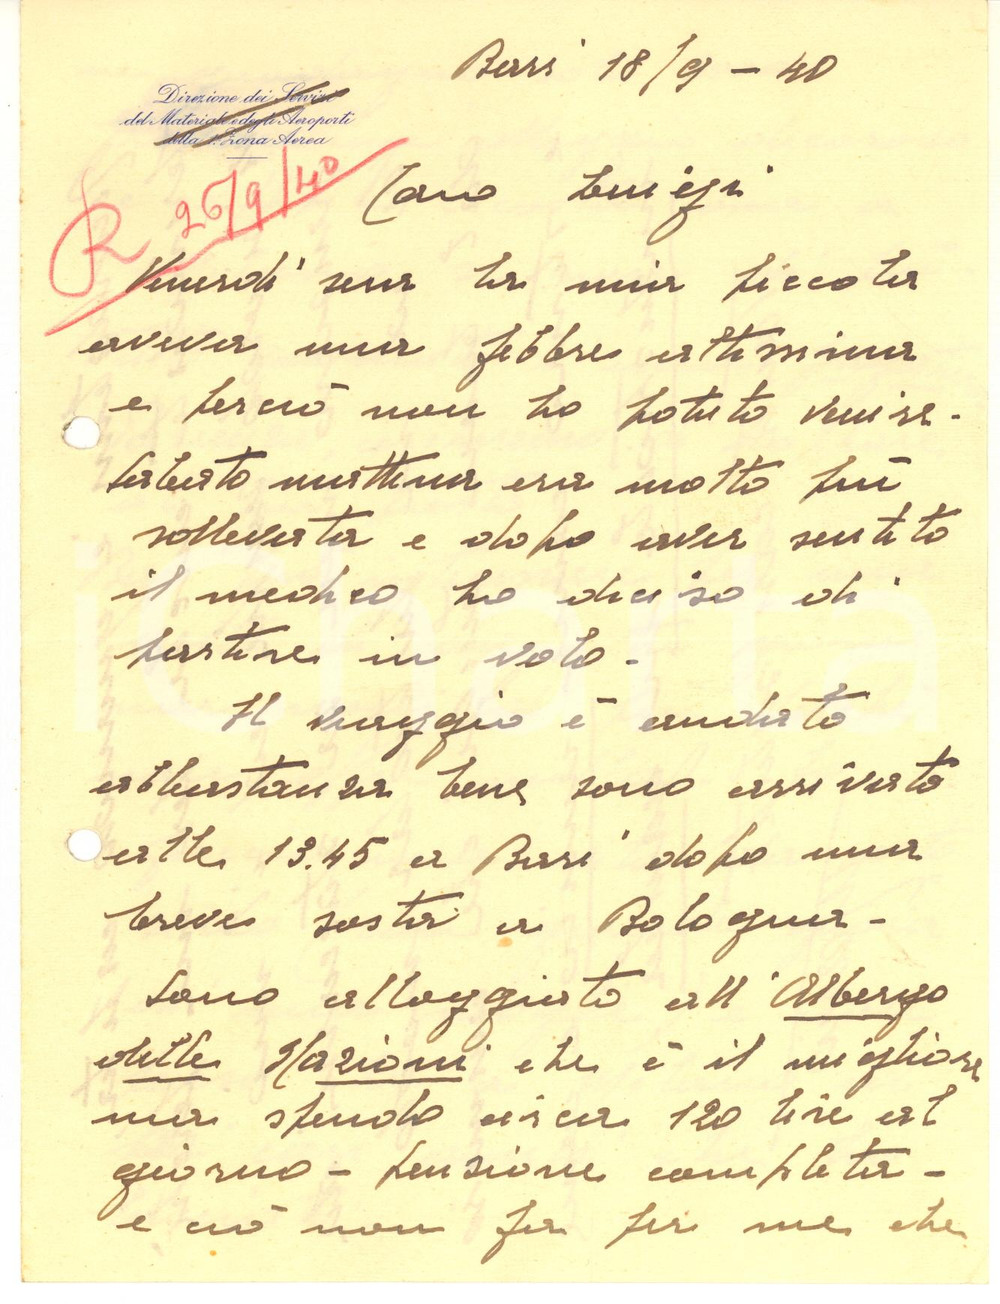 Bari 18/9 - 40
Direzione dei Servizi
del Materiale e degli Aeroporti
della 1. Zona Aerea
R 26/9/40
Caro Luigi
Venerdì sera la mia piccola
aveva una febbre altissima
e perciò non ho potuto venire.
Sabato mattina era molto più
sollevata e dopo aver sentito
il medico ho deciso di
partire in volo -
Il viaggio è andato
abbastanza bene sono arrivato
alle 13.45 a Bari dopo una
breve sosta a Bologna -
Sono alloggiato all'Albergo
delle Nazioni che è il migliore
ma spendo circa 120 lire al
giorno - pensione completa -
e ciò non fa per me che
iCharta